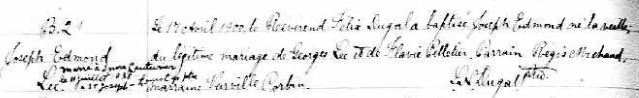 B. 21
Joseph Edmond
Lee
marié à
le 11 juillet 1936
à St Joseph
Le 17 Avril 1900, le Révérend Félix Dugal a baptisé Joseph Edmond né la veille,
du légitime mariage de Georges Lee et de Flavie Pelletier. Parrain Régis Michaud,
marraine Corbin.
Dugal ptre